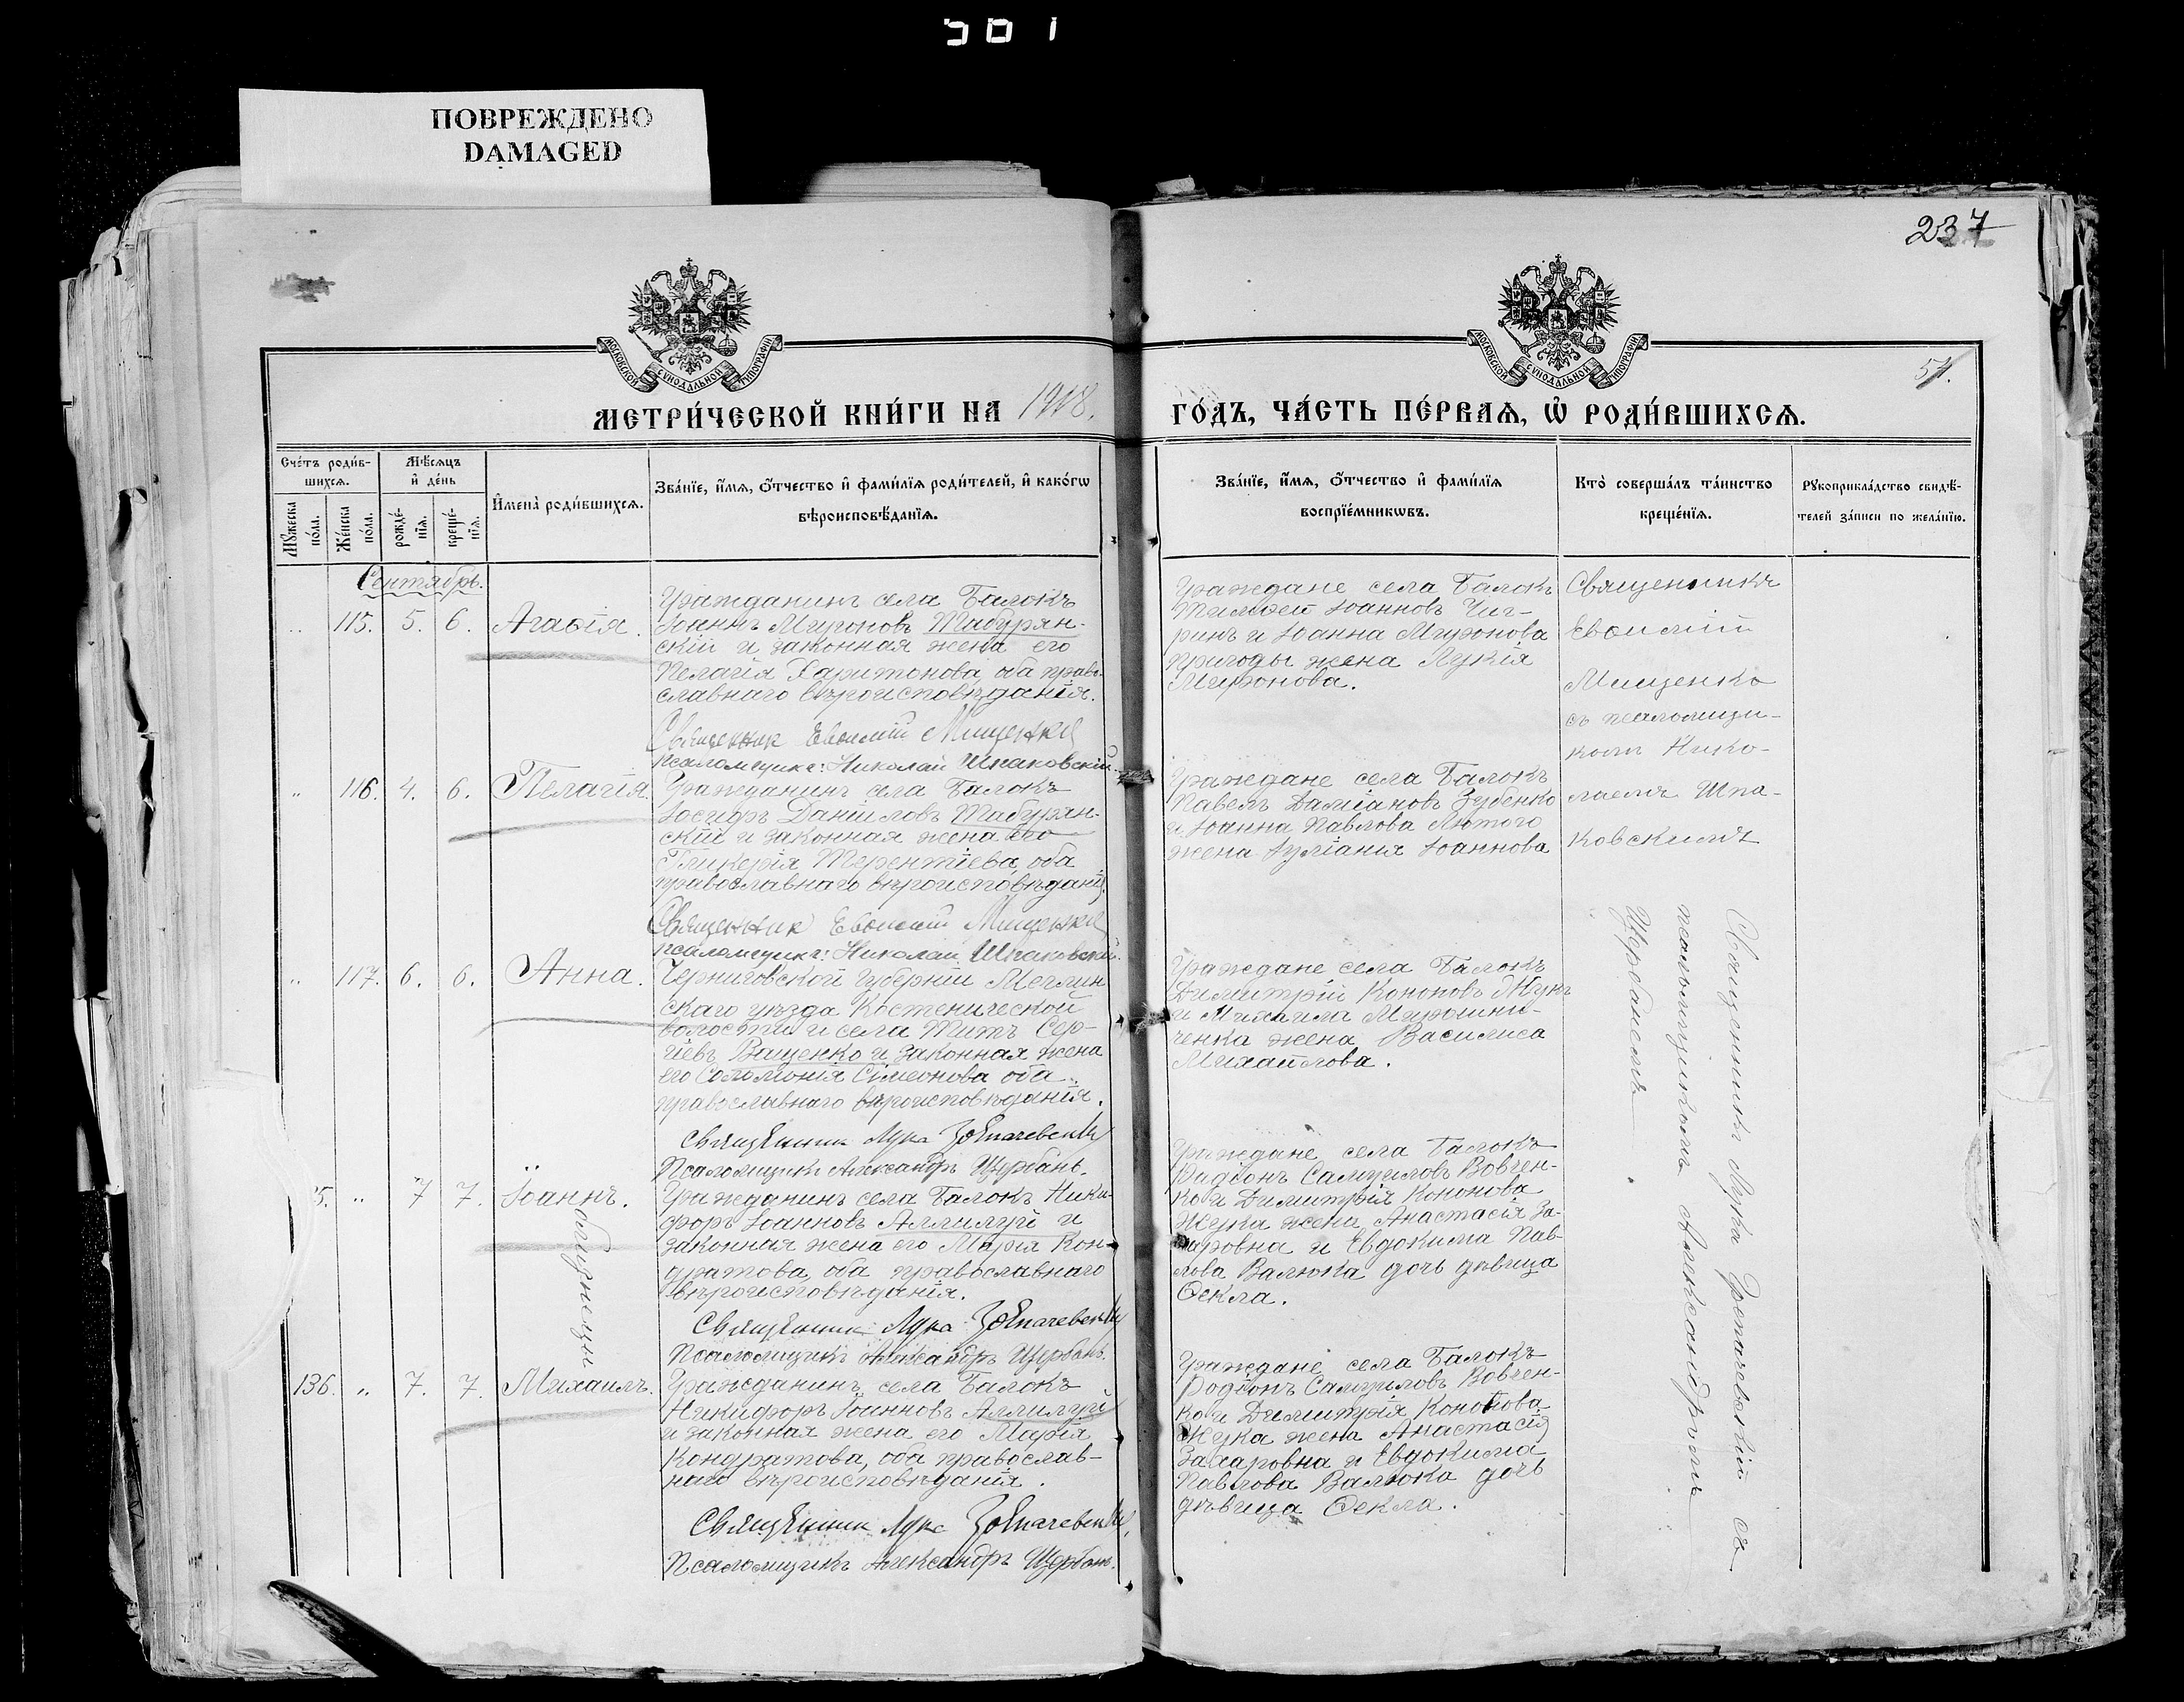 501
ПОВРЕЖДЕНО
DAMAGED
237
МОСКОВСКОЙ СѴНОДАЛЬНОЙ ТИПОГРАФІИ
МОСКОВСКОЙ СѴНОДАЛЬНОЙ ТИПОГРАФІИ
51.
МЕТРИ́ЧЕСКОЙ КНИ́ГИ НА 1918.
ГО́ДЪ, ЧА́СТЬ ПЕ́РВАѦ, Ѡ҆ РОДИ́ВШИХСѦ.
Сче́тъ роди́в-
шихсѧ.
Мꙋ́жеска
по́ла.
Же́нска
по́ла.
Мѣ́сѧцъ
и҆ де́нь
рожде́-
нїѧ.
креще́-
нїѧ.
И҆мена̀ роди́вшихсѧ.
Зва́нїе, и҆́мѧ, ѻ҆́тчество и҆ фами́лїѧ роди́телей, и҆ како́гѡ
вѣроисповѣ́данїѧ.
Зва́нїе, и҆́мѧ, ѻ҆́тчество и҆ фами́лїѧ
воспрїе́мникѡвъ.
Кто̀ соверша́лъ та́инство
креще́нїѧ.
Рꙋкоприкла́дство свидѣ́-
телей за́писи по жела́нїю.
Сентябрь.
" 115. 5. 6. Агаѳія.
Гражданинъ села Балокъ
Іоаннъ Мироновъ Табурян-
скій и законная жена его
Пелагія Харитонова, оба право-
славнаго вѣроисповѣданія.
Священник Евѳимій Мищенко
Псаломщикъ: Николай Шпаковскій.
Граждане села Балокъ
Тимоѳей Іоанновъ Чиг-
ринъ и Іоанна Миронова
Пригоды жена Лукія
Миронова.
Священникъ
Евѳимій
Мищенко
съ псаломщи-
комъ Нико-
лаемъ Шпа-
ковскимъ
" 116. 4. 6. Пелагія.
Гражданинъ села Балокъ
Іосифъ Даніиловъ Табурян-
скій и законная жена его
Гликерія Терентіева, оба
православнаго вѣроисповѣданія.
Священник Евѳимій Мищенко
Псаломщикъ: Николай Шпаковскій.
Граждане села Балокъ
Павелъ Даміановъ Зубенко
и Іоанна Павлова Лютого
жена Іуліанія Іоаннова
" 117. 6. 6. Анна.
Черниговской губерніи Мглин
скаго уѣзда Костенической
волости и села Титъ Сер-
гіевъ Ващенко и законная жена
его Соломонія Симеонова оба
православнаго вѣроисповѣданія.
Священник Лука
Псаломщикъ Александръ Щербань.
Граждане села Балокъ
Димитрій Кононовъ Жукъ
и Михаила Мирошни-
ченка жена Василиса
Михайлова.
Священникъ Лука съ
псаломщикомъ Александромъ
Щербанемъ
5. " 7 7. Іоаннъ.
близнецы
Гражданинъ села Балокъ Ники-
форъ Іоанновъ Аллилуй и
законная жена его Марія Кон-
дратова, оба православнаго
вѣроисповѣданія.
Священник Лука
Псаломщикъ Александръ Щербань.
Граждане села Балокъ
Радіонъ Самуиловъ Вовчен-
ко и Димитрія Кононова
Жука жена Анастасія За-
харовна и Евдокима Пав-
лова Валюка дочь дѣвица
Ѳекла.
136. " 7. 7. Михаилъ.
Гражданинъ села Балокъ
Никифоръ Іоанновъ Аллилуй
и законная жена его Марія
Кондратова, оба православ-
наго вѣроисповѣданія.
Священник Лука
Псаломщикъ Александръ Щербань.
Граждане села Балокъ
Родіонъ Самуиловъ Вовчен-
ко и Димитрія Кононова
Жука жена Анастасія
Захаровна и Евдокима
Павлова Валюка дочь
дѣвица Ѳекла.